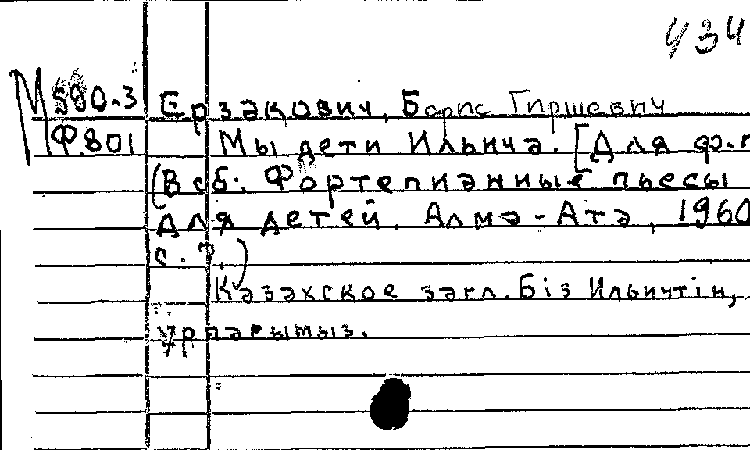 434
М 590.3
Ф.801
Ерзакович, Борис Гиршевич
Мы дети Ильича. [Для ф.-п
(В сб.: Фортепианные пьесы
для детей. Алма-Ата, 1960
с. 7.)
Казахское загл. Біз Ильичтің,
ұрпағымыз.